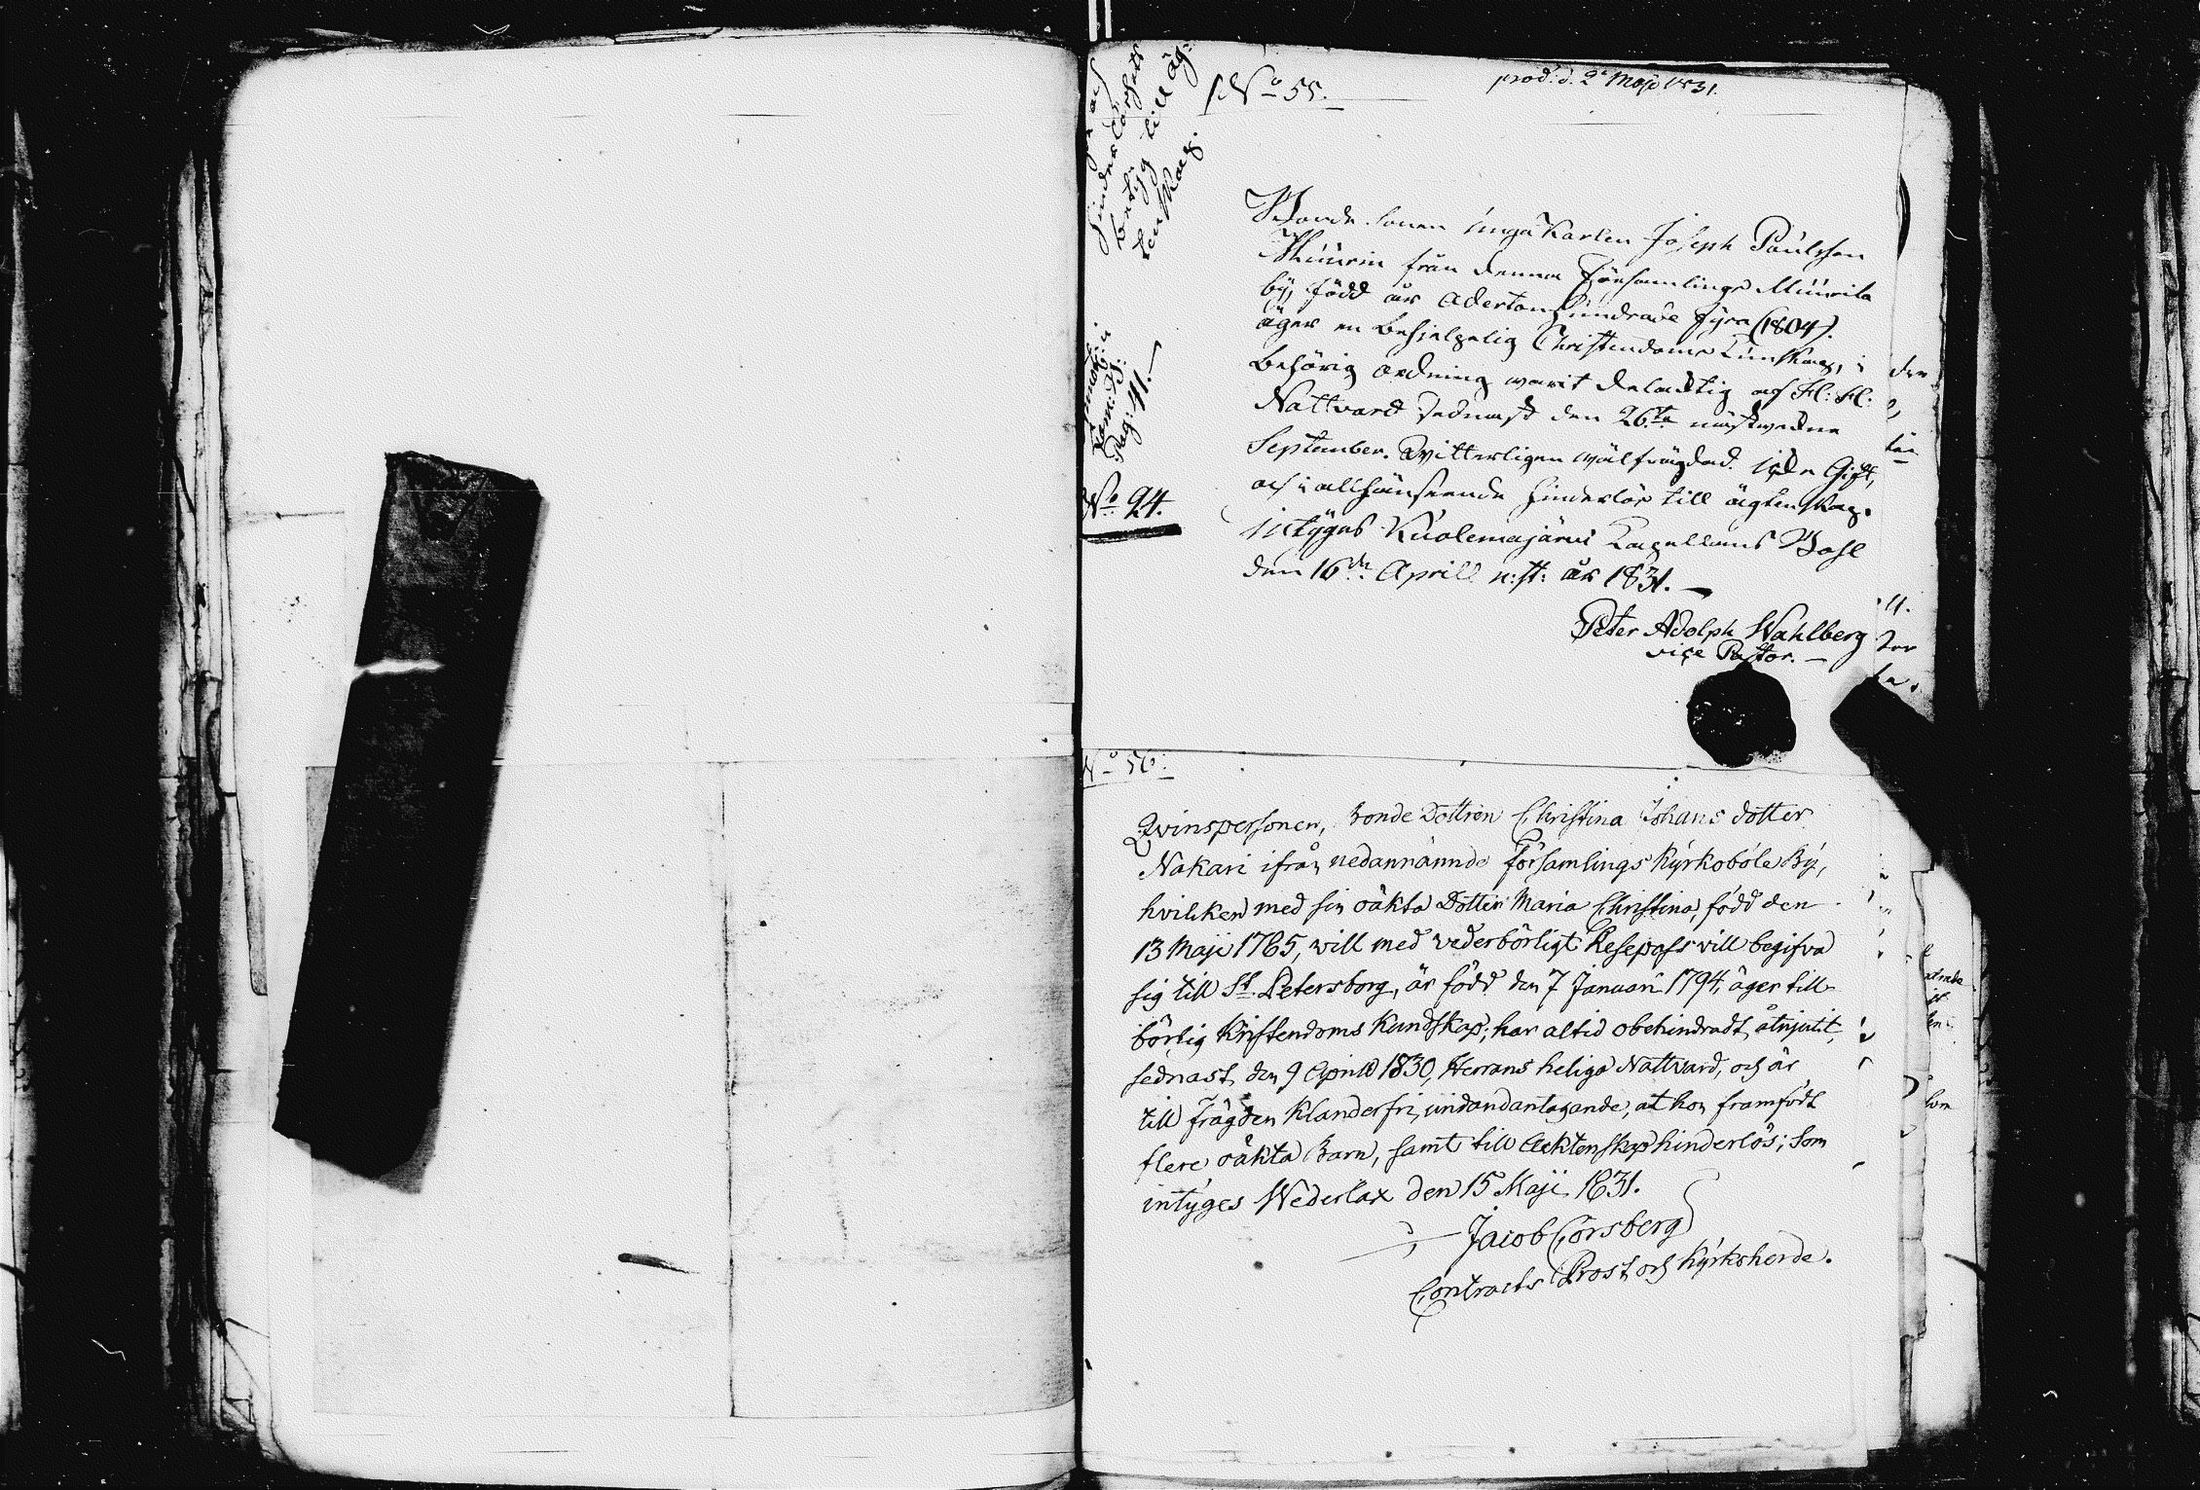 No 55.
prod: d. 2 Maji 1831.
hinderslöshets
betyg till äg-
tenskap.
Pag: 41.
No 94.
Bonde sonen unga Karlen Joseph Paulsson
från denna Församlings Muurila
by, född år Adertonhundrade fyra (1804).
äger en behjelpelig Christendoms Kunskap, i
behörig ordning warit delacktig af H: H:
Nattvard sednast den 26te nästwekne
September. Witterligen wälfrägdad. icke Gift,
och i allt hänseende hinderlös till ägtenskap.
intygas Kuolemajärvi Capellans Bohl
den 16de Aprill n: st: år 1831.
Peter Adolph Wahlberg
vice Pastor.
No 56.
Qvinspersonen, Bonde Dottren Christina Johans dotter
Nakari ifrån nedannämnde Församlings Kyrkoböle By,
hvilken med sin oäkta Dotter Maria Christina, född den
13 Maji 1765, will med vederbörligt Resepass vill begifva
sig till St Petersborg, är född den 7 Januari 1794, äger till-
börlig Kristendoms Kundskap; har altid obehindradt åtnjutit,
sednast den 9 April 1830, Herrans heliga Nattvard, och är
till frägden Klanderfri, undandantagande, at hon framfödt
flere oäkta Barn, samt till Aecktenskap hinderlös; Som
intyges Wederlax den 15 Maji 1831.
Jacob Corsberg
Contracts Prost och Kyrkoherde.